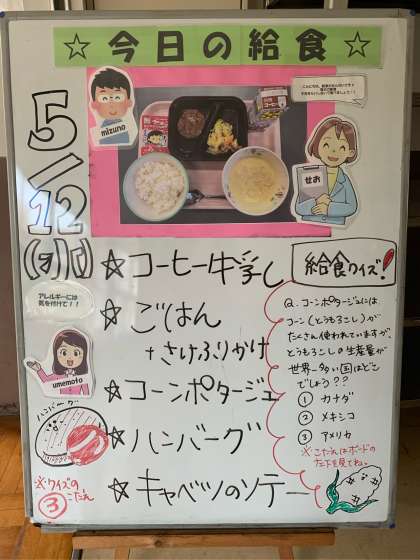 ☆今日の給食☆
mizuno
せお
5/12
(月)
アレルギーには
気を付けて！！
umemoto
☆コーヒー牛乳
☆ごはん
+さけふりかけ
☆コーンポタージュ
☆ハンバーグ
☆キャベツのソテー
給食クイズ！
Q.コーンポタージュには、
コーン(とうもろこし)が
たくさん使われていますが、
とうもろこしの生産量が
世界一多い国はどこ
でしょう？？
① カナダ
② メキシコ
③ アメリカ
※こたえはボードの
左下を見てね。
ハンバーグ
※クイズの
こたえ
③